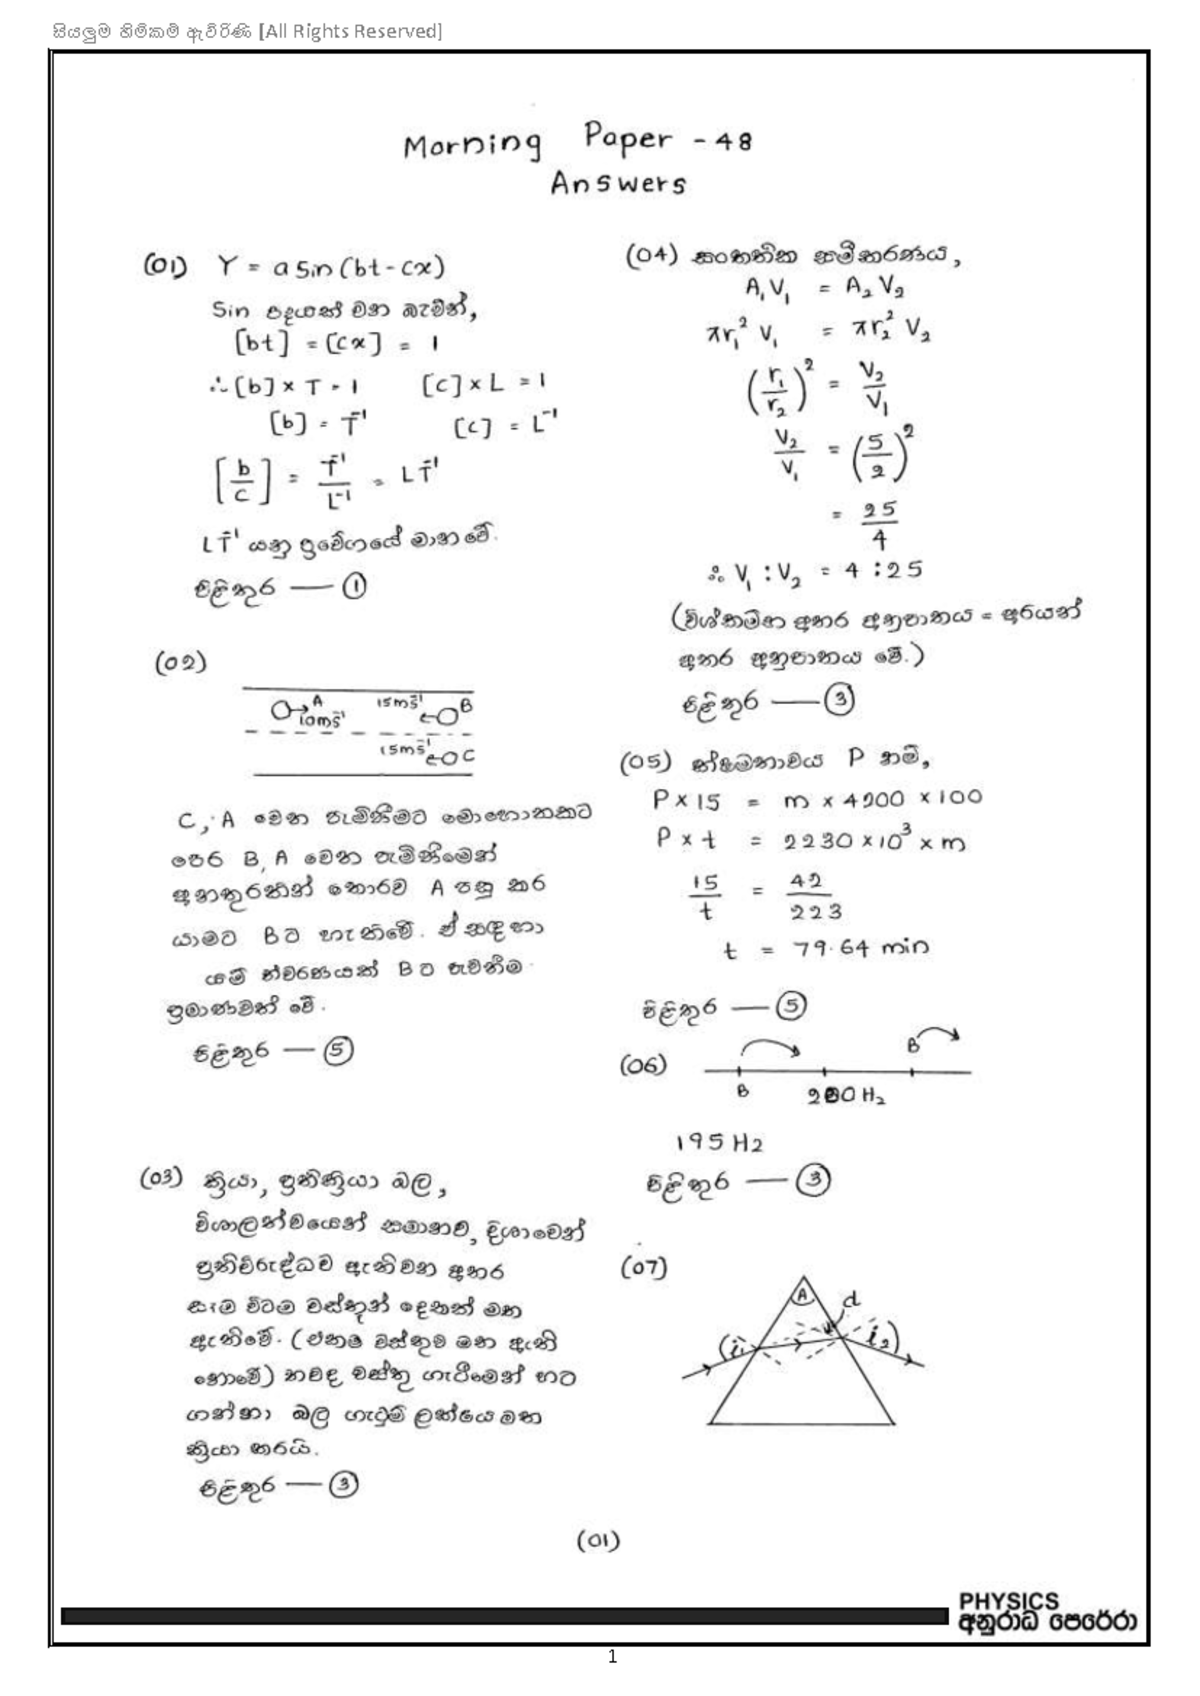 සියලුම හිමිකම් ඇව්රිණි [All Rights Reserved]
Morning Paper - 48
Answers
(01) Y = a Sin (bt - cx)
Sin පදයක් වන බැවින්,
[bt] = [cx] = 1
∴ [b] × T = 1 [c] × L = 1
[b] = T⁻¹ [c] = L⁻¹
[b/c] = T⁻¹/L⁻¹ = LT⁻¹
LT⁻¹ යනු ප්‍රවේගයේ මාන වේ.
පිළිතුර — ①
(02)
A 15ms⁻¹ B
10ms⁻¹
15ms⁻¹ C
C, A වෙත පැමිණීමට මොහොතකට
පෙර B, A වෙත පැමිණීමෙන්
අනතුරකින් තොරව A පසු කර
යාමට B ට හැකිවේ. ඒ සඳහා
යම් ත්වරණයක් B ට පැවතීම
ප්‍රමාණවත් වේ.
පිළිතුර — ⑤
(03) ක්‍රියා, ප්‍රතික්‍රියා බල,
විශාලත්වයෙන් සමානව, දිශාවෙන්
ප්‍රතිවිරුද්ධව ඇතිවන අතර
සෑම විටම වස්තූන් දෙකක් මත
ඇතිවේ. (එකම වස්තුව මත ඇති
නොවේ) තවද වස්තු ගැටීමෙන් හට
ගන්නා බල ගැටුම් ලක්ෂ්‍යය මත
ක්‍රියා කරයි.
පිළිතුර — ③
(04) සංතතික සමීකරණය,
A₁V₁ = A₂V₂
πr₁² V₁ = πr₂² V₂
(r₁/r₂)² = V₂/V₁
V₂/V₁ = (5/2)²
= 25/4
∴ V₁ : V₂ = 4 : 25
(විශ්කම්භ අතර අනුපාතය = අරයන්
අතර අනුපාතය වේ.)
පිළිතුර — ③
(05) ක්ෂමතාවය P නම්,
P × 15 = m × 4200 × 100
P × t = 2230 × 10³ × m
15/t = 42/223
t = 79.64 min
පිළිතුර — ⑤
(06) B
B 200Hz
195Hz
පිළිතුර — ③
(07)
A d
(i₁ i₂)
(01)
PHYSICS
අනුරාධ පෙරේරා
1